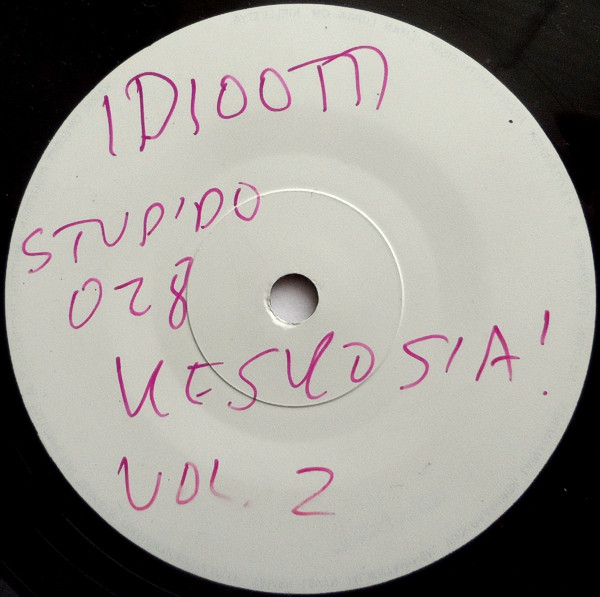 IDIOOTTI
STUPIDO
028
KESKOSIA!
VOL. 2